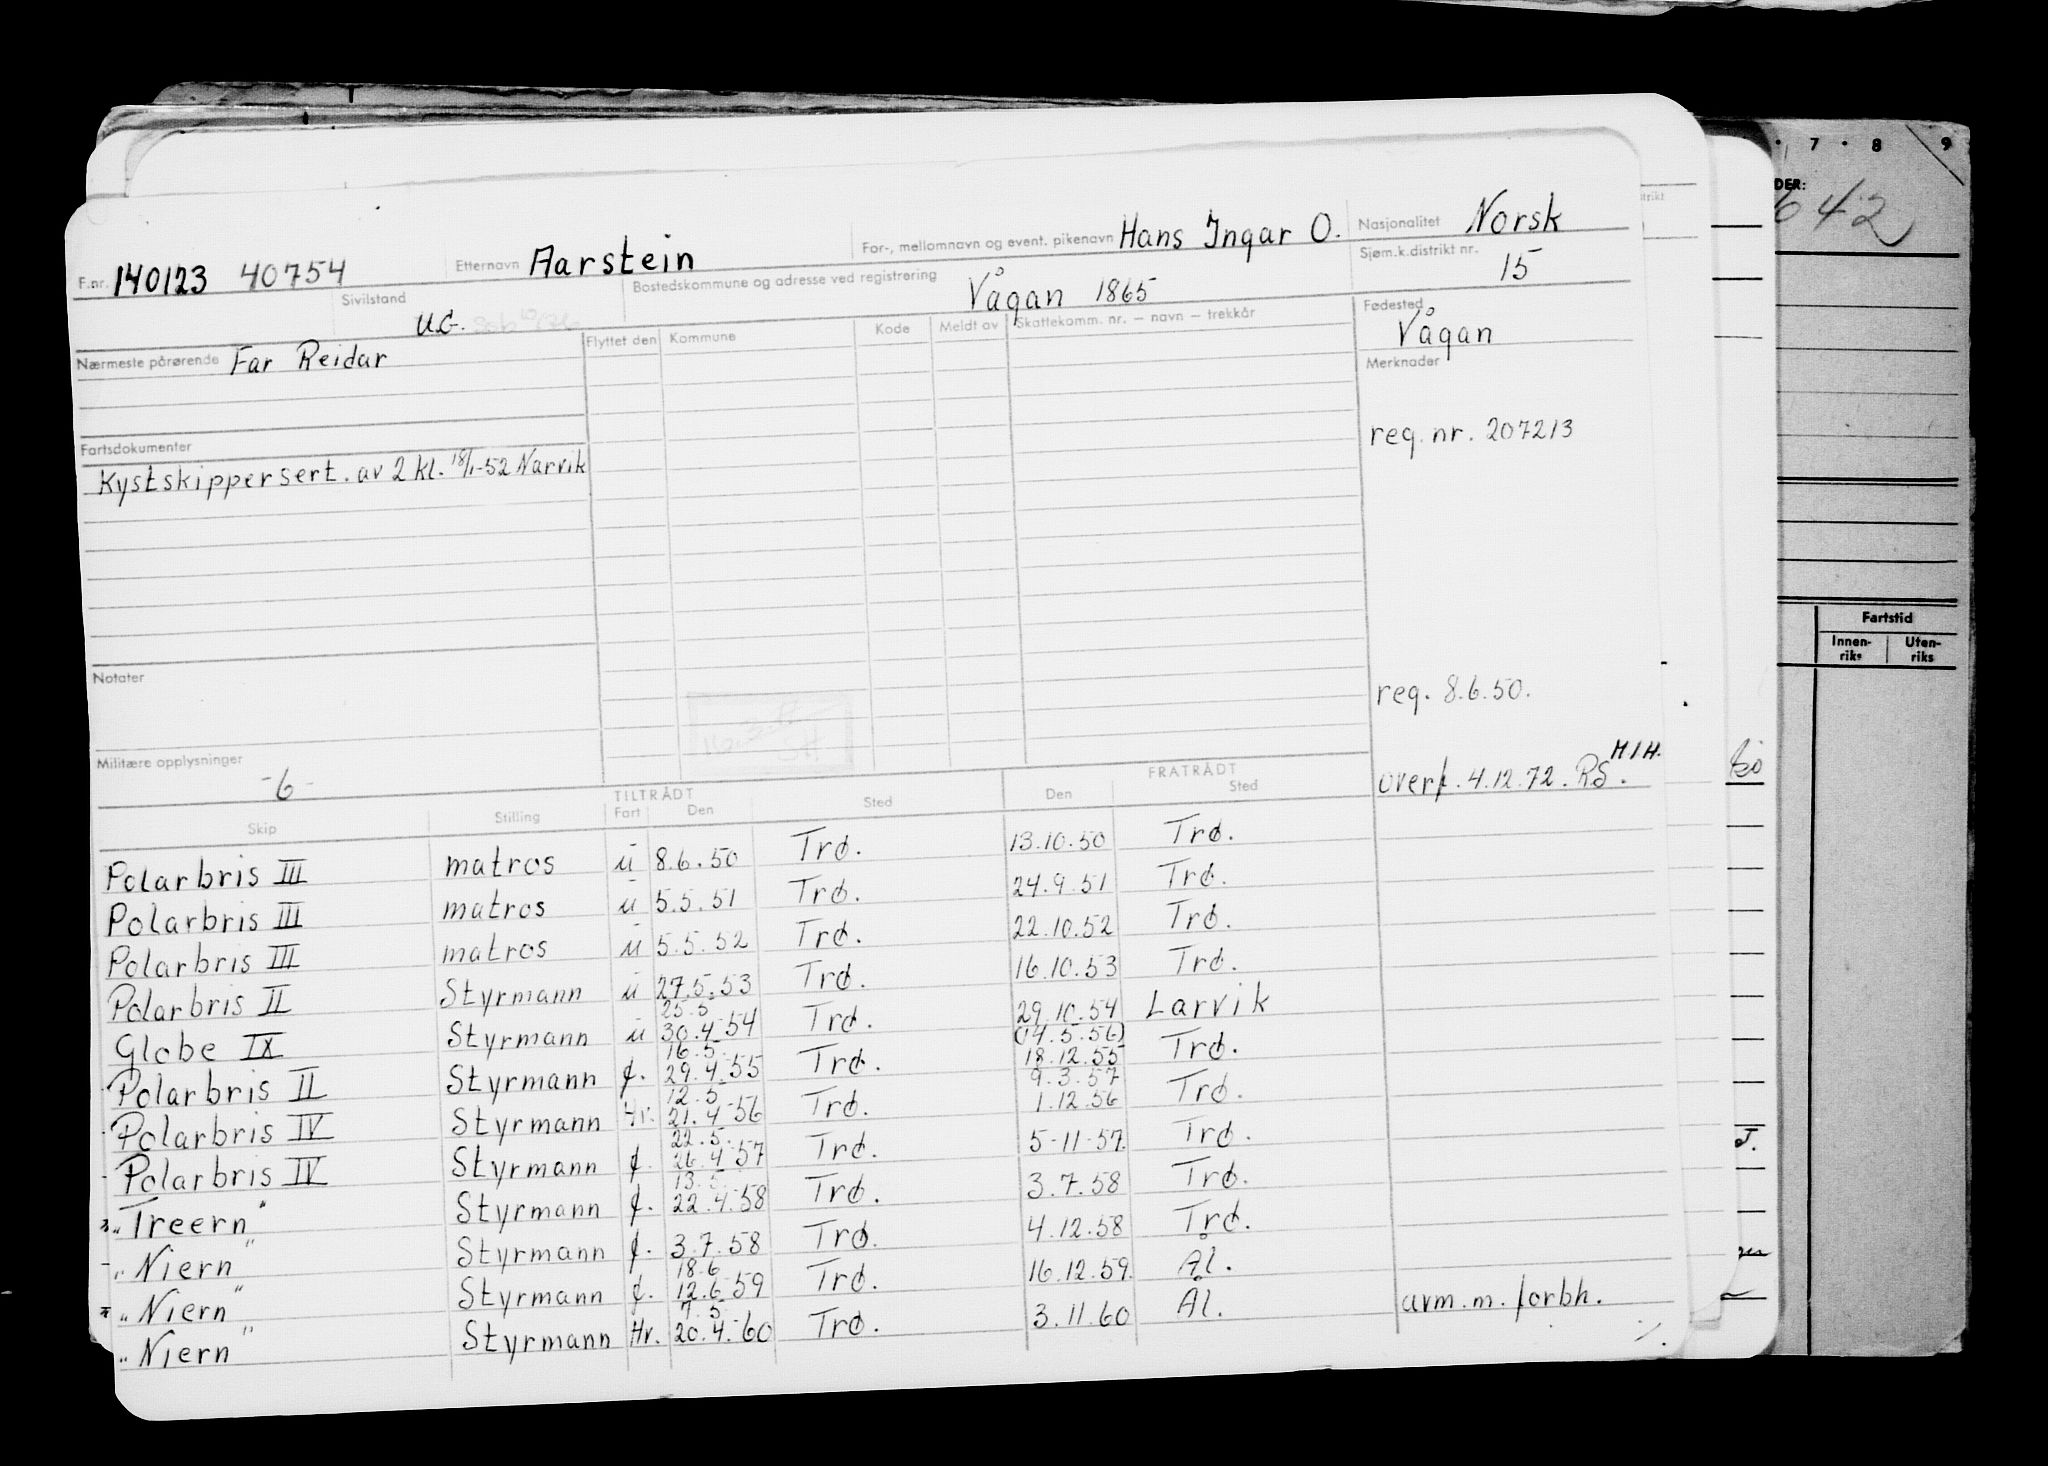 F.nr. 140123 40754 Etternavn Aarstein For-, mellomnavn og event. pikenavn Hans Ingar O. Nasjonalitet Norsk
Sivilstand U.G. Bostedskommune og adresse ved registrering Vågan 1865 Sjøm.k.distrikt nr. 15
Nærmeste pårørende Far Reidar Flyttet den Kommune Kode Meldt av Skattekomm. nr. — navn — trekkår Fødested Vågan
Merknader
Fartsdokumenter
reg. nr. 207213
Kystskippersert. av 2 kl. 18/1-52 Narvik
Notater
reg. 8.6.50.
Militære opplysninger -6-
overf. 4.12.72. RS. M/H.
TILTRÅDT FRATRÅDT
Skip Stilling Fart Den Sted Den Sted
Polarbris III matros u 8.6.50 Trø. 13.10.50 Trø.
Polarbris III matros u 5.5.51 Trø. 24.9.51 Trø.
Polarbris III matros u 5.5.52 Trø. 22.10.52 Trø.
Polarbris II Styrmann u 27.5.53 Trø. 16.10.53 Trø.
25.5
Globe IX Styrmann u 30.4.54 Trø. 29.10.54 Larvik
16.5. (14.5.56)
Polarbris II Styrmann f. 29.4.55 Trø. 18.12.55 Trø.
12.5. 9.3.57
Polarbris IV Styrmann Hv. 21.4.56 Trø. 1.12.56 Trø.
22.5.
Polarbris IV Styrmann f. 26.4.57 Trø. 5-11-57. Trø.
13.5.
"Treern" Styrmann f. 22.4.58 Trø. 3.7.58 Trø.
"Niern" Styrmann f. 3.7.58 Trø. 4.12.58 Trø.
18.6
"Niern" Styrmann f. 12.6.59 Trø. 16.12.59. Ål.
7.5
"Niern" Styrmann Hv. 20.4.60 Trø. 3.11.60 Ål. avm. m. forbh.
7 8 9
DER:
642
Fartstid
Innen-riks Uten-riks